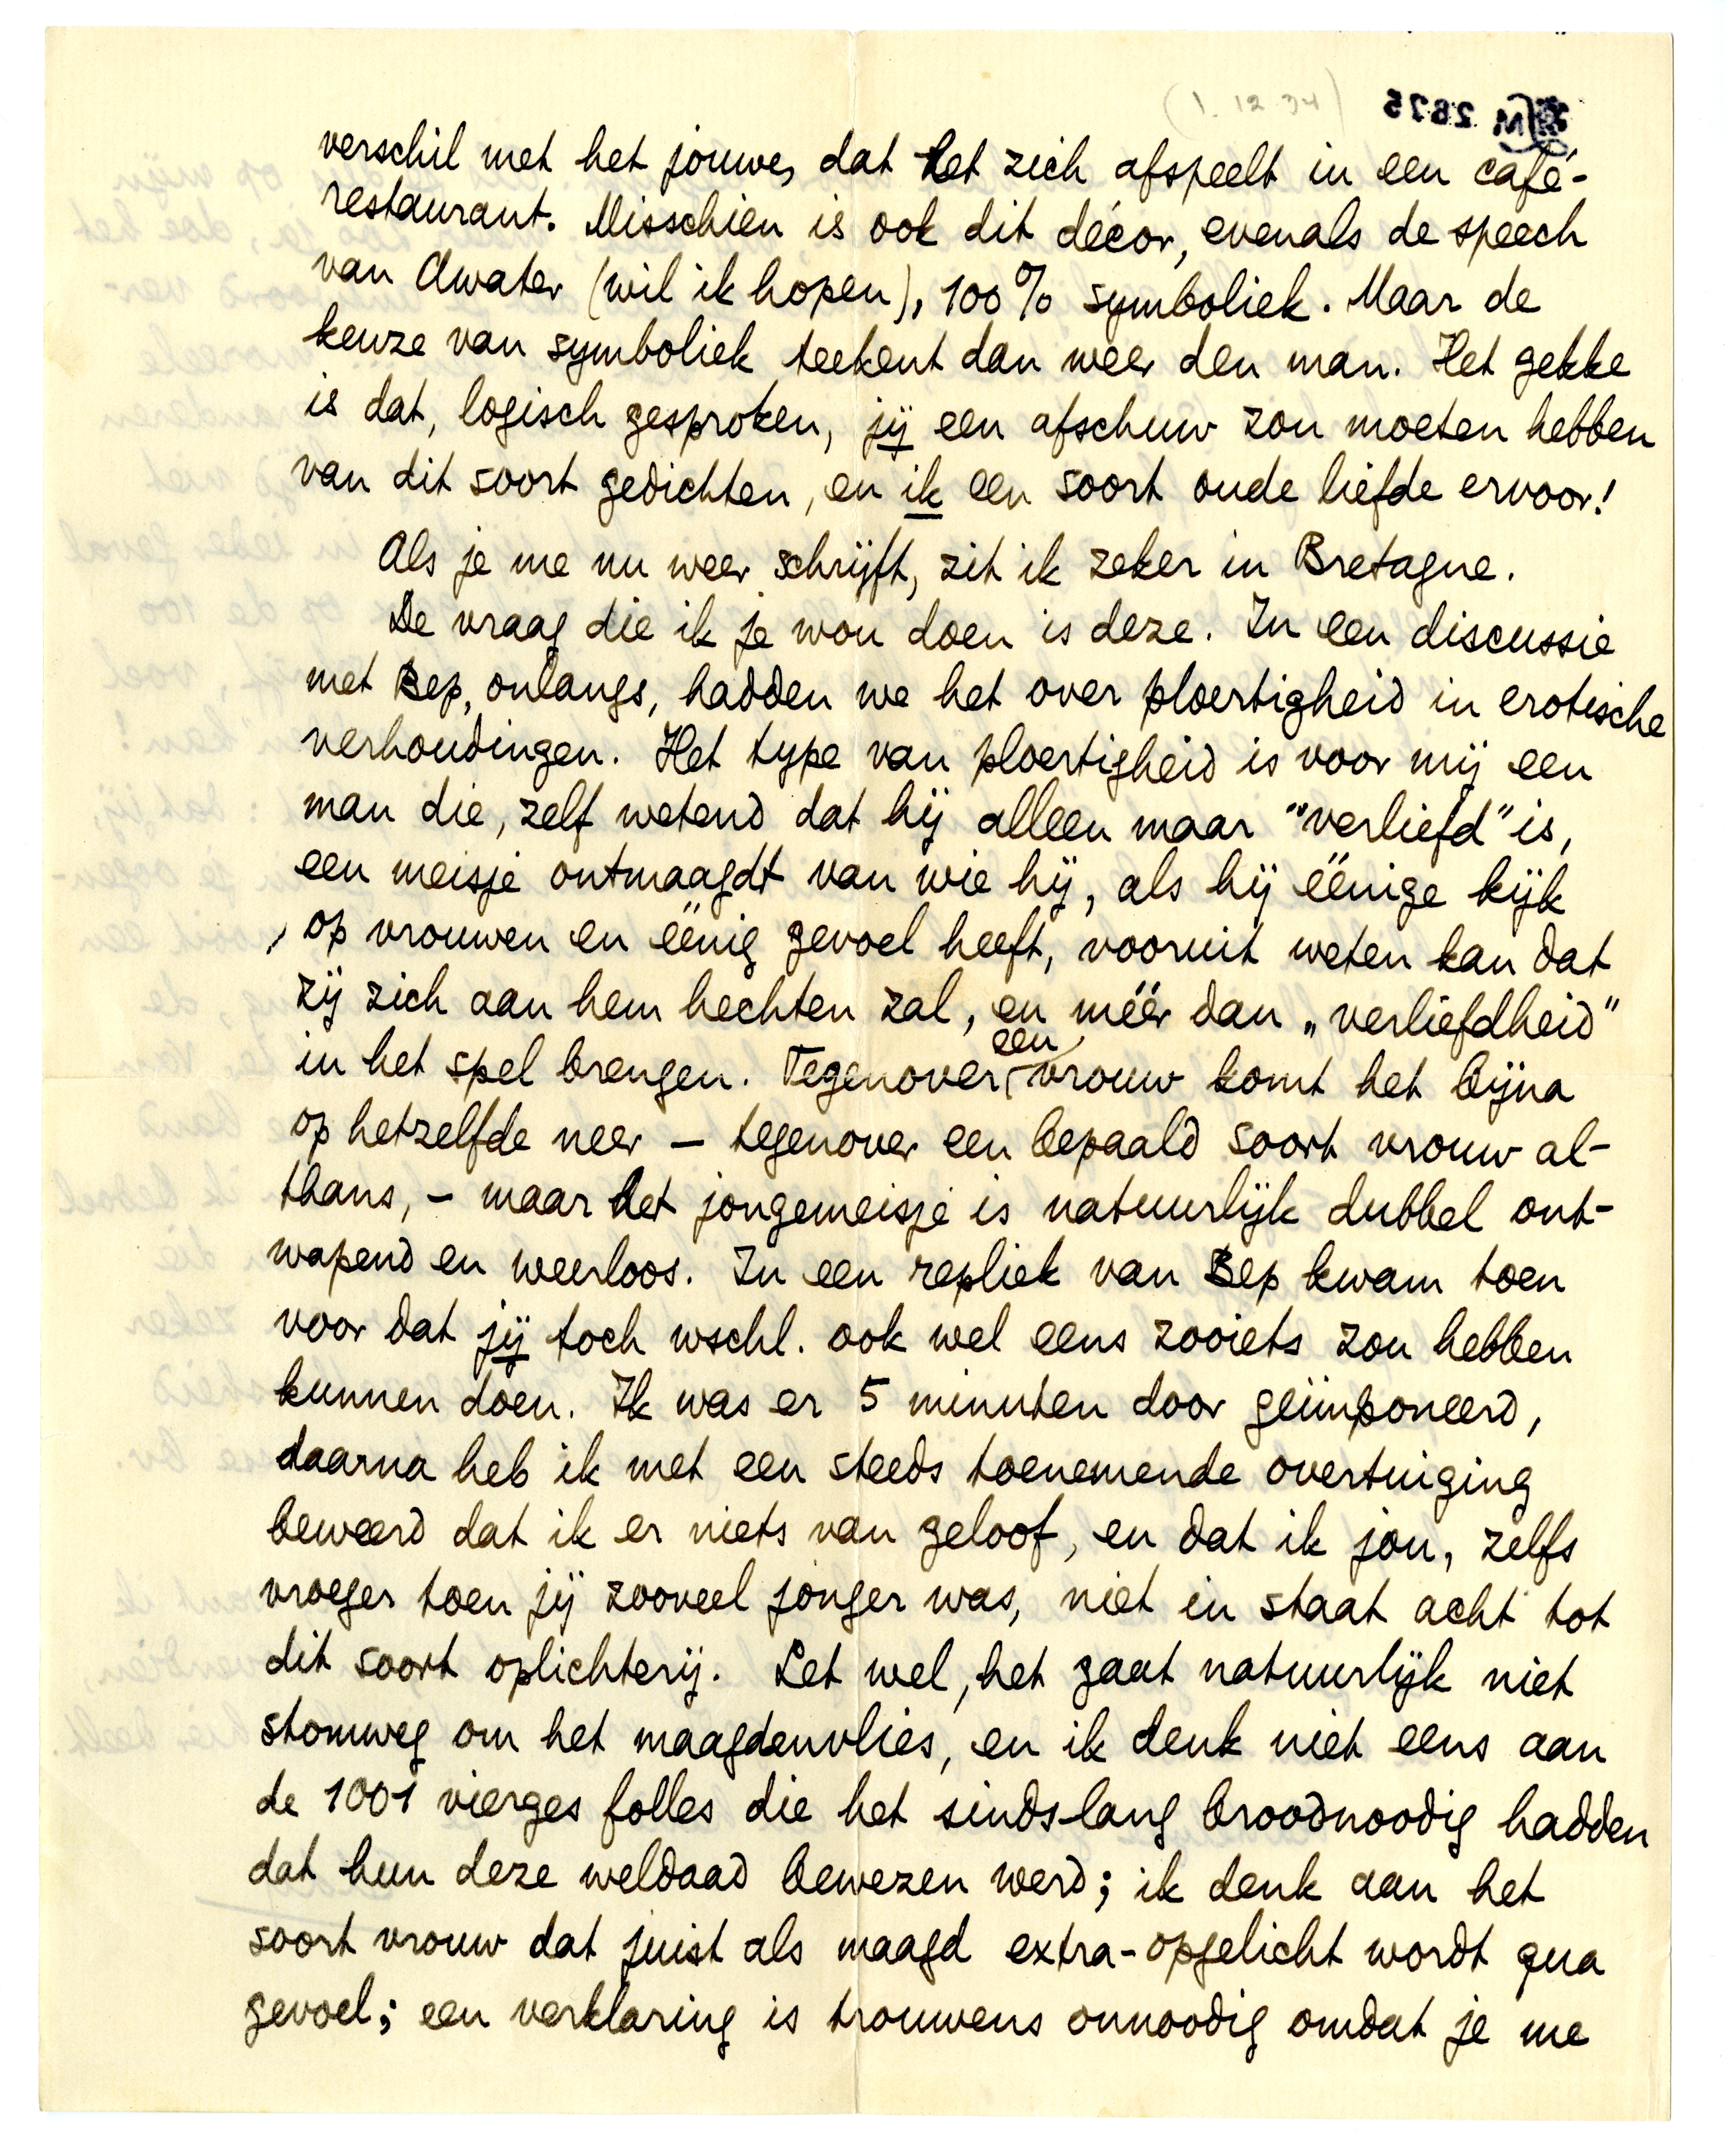 (1.12.34)
M 2675
verschil met het jouwe, dat het zich afspeelt in een café-
restaurant. Misschien is ook dit décor, evenals de speech
van Awater (wil ik hopen), 100% symboliek. Maar de
keuze van symboliek teekent dan weer den man. Het gekke
is dat, logisch gesproken, jij een afschuw zou moeten hebben
van dit soort gedichten, en ik een soort oude liefde ervoor!
Als je me nu weer schrijft, zit ik zeker in Bretagne.
De vraag die ik je wou doen is deze. In een discussie
met Bep, onlangs, hadden we het over ploertigheid in erotische
verhoudingen. Het type van ploertigheid is voor mij een
man die, zelf wetend dat hij alleen maar "verliefd" is,
een meisje ontmaagdt van wie hij, als hij éénige kijk
op vrouwen en éénig gevoel heeft, vooruit weten kan dat
zij zich aan hem hechten zal, en méér dan „verliefdheid"
in het spel brengen. Tegenover een vrouw komt het bijna
op hetzelfde neer – tegenover een bepaald soort vrouw al-
thans, – maar het jongemeisje is natuurlijk dubbel ont-
wapend en weerloos. In een repliek van Bep kwam toen
voor dat jij toch wschl. ook wel eens zooiets zou hebben
kunnen doen. Ik was er 5 minuten door geïmponeerd,
daarna heb ik met een steeds toenemende overtuiging
beweerd dat ik er niets van geloof, en dat ik jou, zelfs
vroeger toen jij zooveel jonger was, niet in staat acht tot
dit soort oplichterij. Let wel, het gaat natuurlijk niet
stomweg om het maagdenvlies, en ik denk niet eens aan
de 1001 vierges folles die het sinds lang broodnoodig hadden
dat hun deze weldaad bewezen werd; ik denk aan het
soort vrouw dat juist als maagd extra-opgelicht wordt qua
gevoel; een verklaring is trouwens onnoodig omdat je me